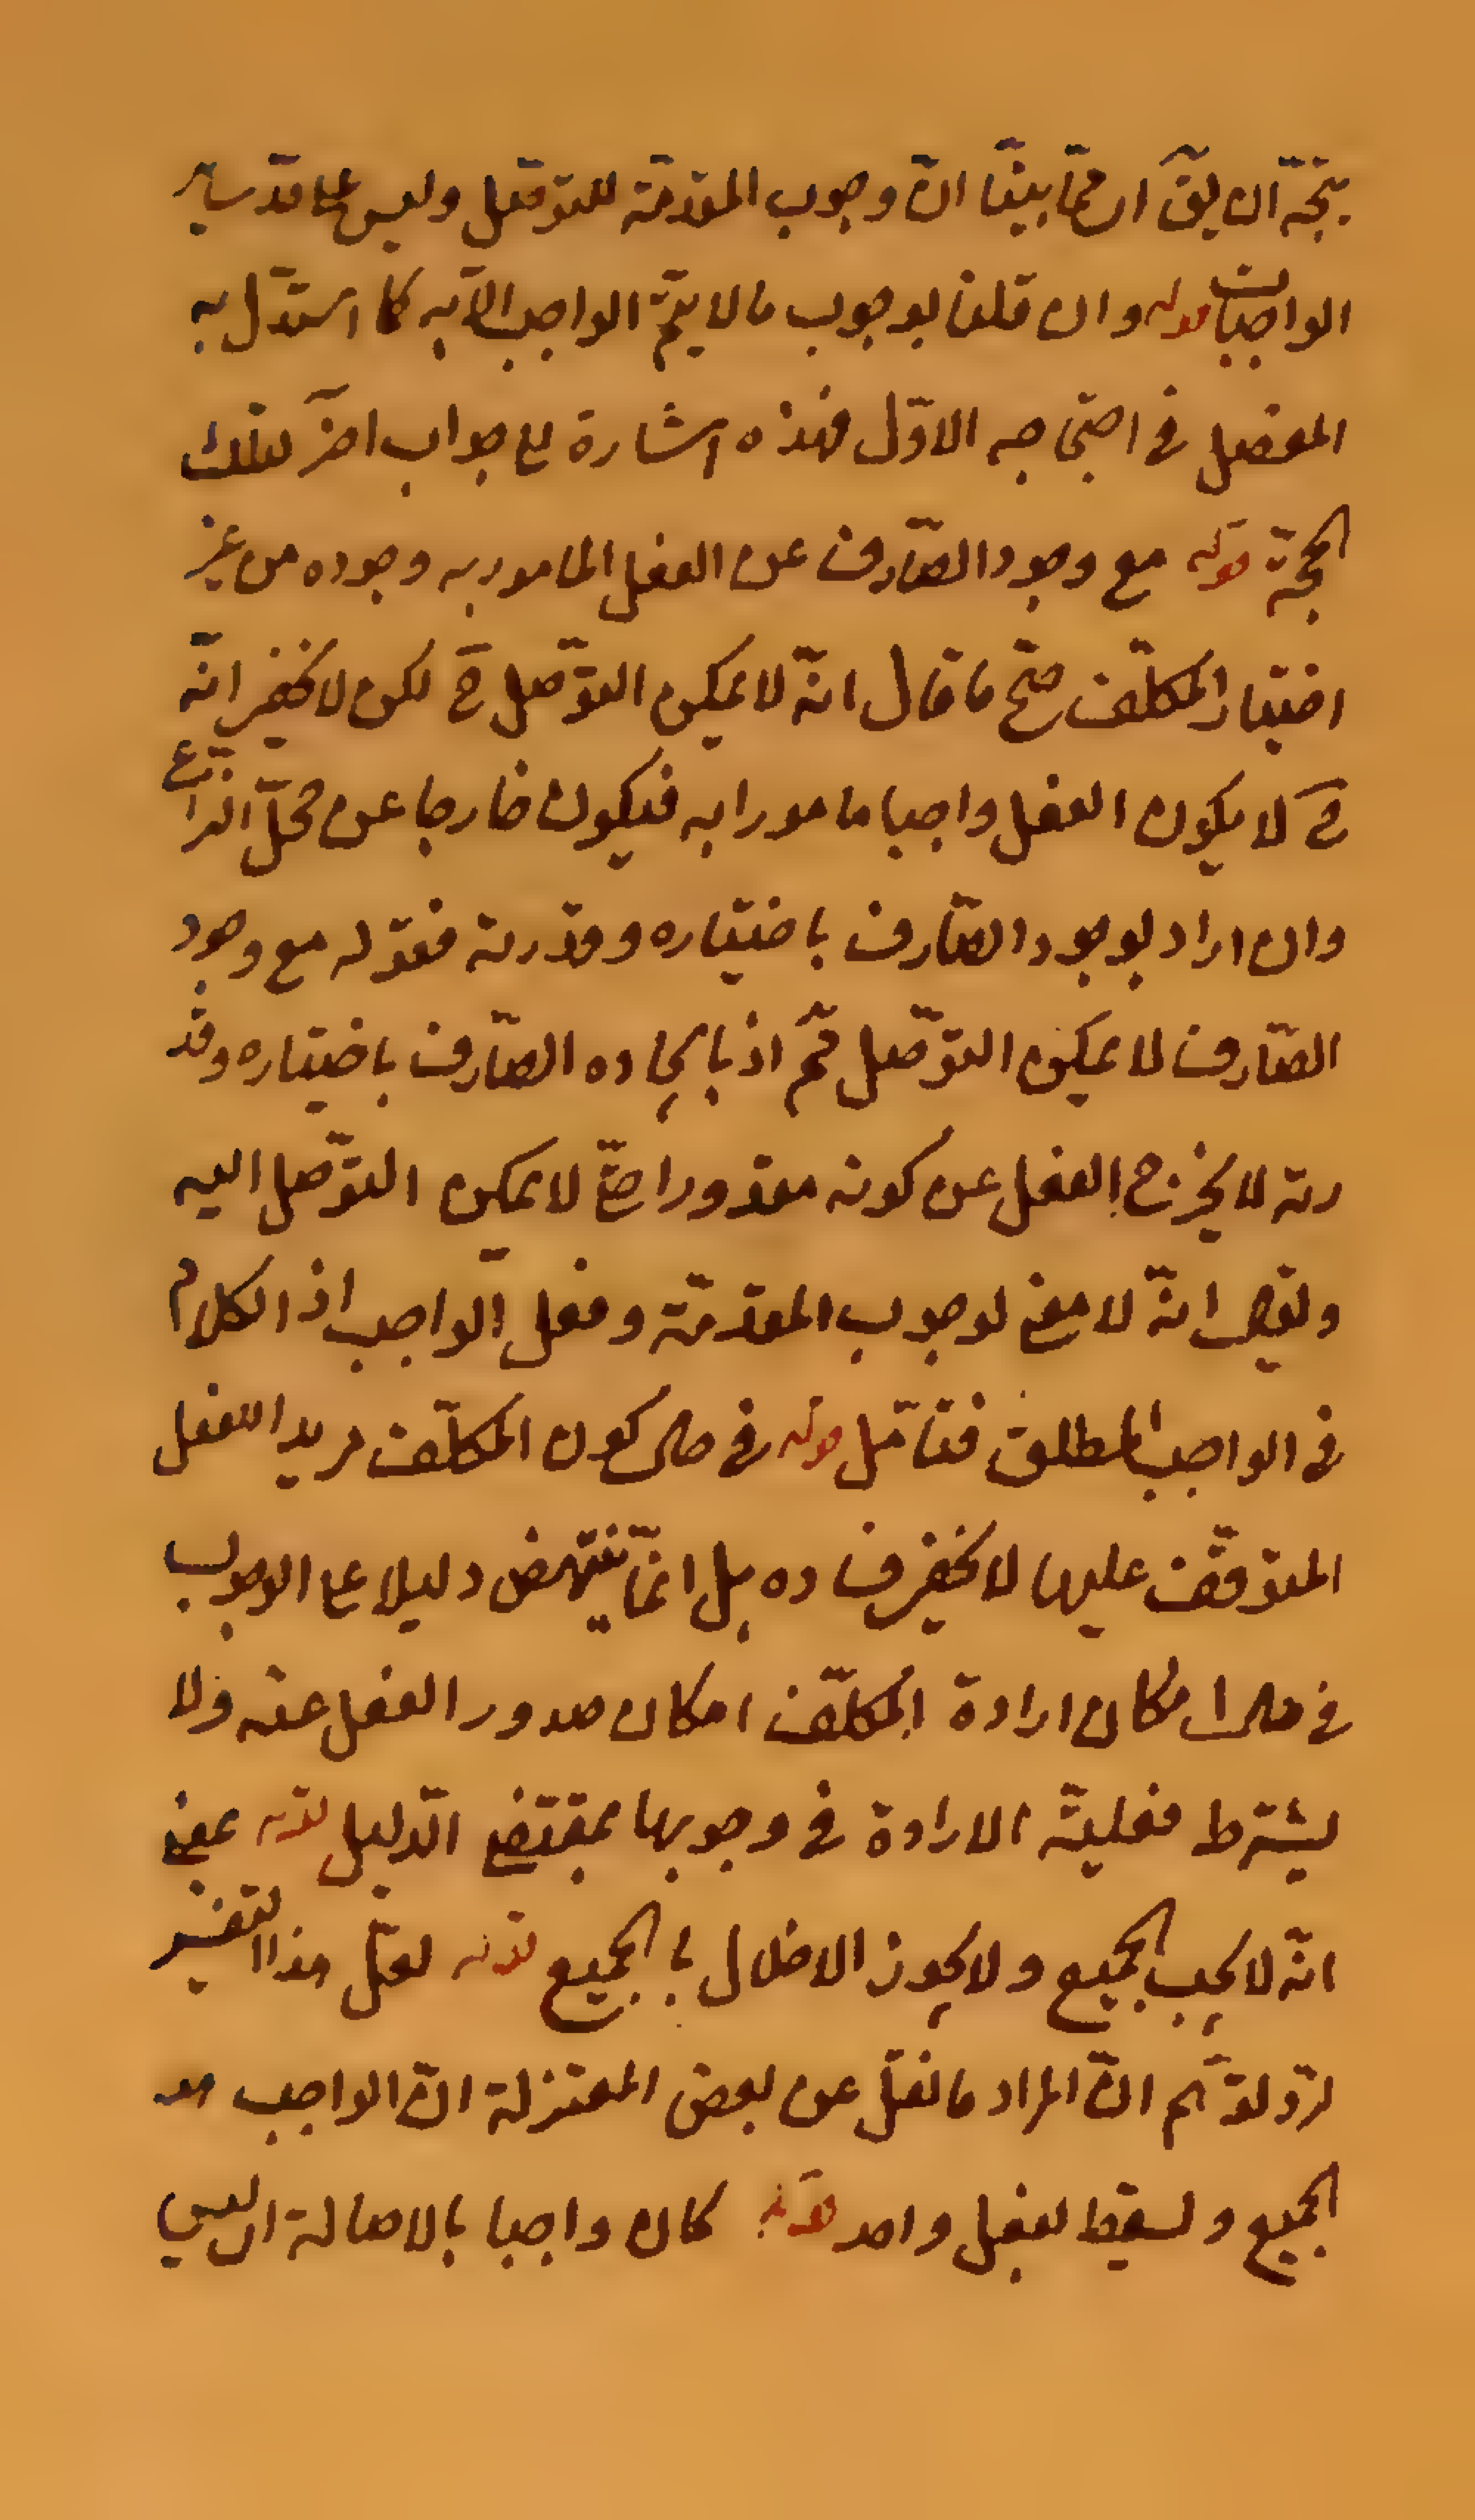 يتجّه ان يقٓ ان ممّا بينّا انّ وجوب المقدّمة للتوصّل وليس على حدّ ساير
الواجبات قوله وان قلنا بوجوب ما لا يتمّ الواجب الّا به كما استدّل به
المفصل في احتجاجه الاوّل فهذه اشارة الى جواب اخر لتلك
الحجّة قوله مع وجود الصّارف عن الفعل المامور به وجوده من غير
اختيار المكلّف صحّ ما قال انّه لا يمكن التوّصل حٓ لكن لا يخفى انّه
حٓ لا يكون الفعل واجبا مامورا به فيكون خارجا عن محلّ النزاع
وان اراد بوجود الصّارف باختياره وقدرته فقوله مع وجود
الصّارف لا يمكن التوّصل ثمّ اذ بايجاده الصّارف باختياره وقد
رته لا يخرج الفعل عن كونه مقدورا حتّى لا يمكن التوّصل اليه
انّه لا معنى لوجوب المقدّمة وفعل الواجب اذ الكلام
في الواجب المطلق فتامّل قوله في حال كون المكلّف مريدا للفعل
المتوقّف عليها لا يخفى فساده بل انمّا ينتهض دليلا على الوجوب
في حال امكان ارادة المكلّف امكان صدور الفعل عنه ولا
يشترط فعليّة الارادة في وجوبها بمقتضى الدّليل قوله بمعنى
انّه لا يجب الجميع ولا يجوز الاخلال بالجميع قوله لعلّ هذا التفسير
لردّ توّهم انّ المراد ما نقل عن بعض المعتزلة انّ الواجب هو
الجميع ويسقط بفعل واحد قوله كان واجبا بالاصالة اى ليس